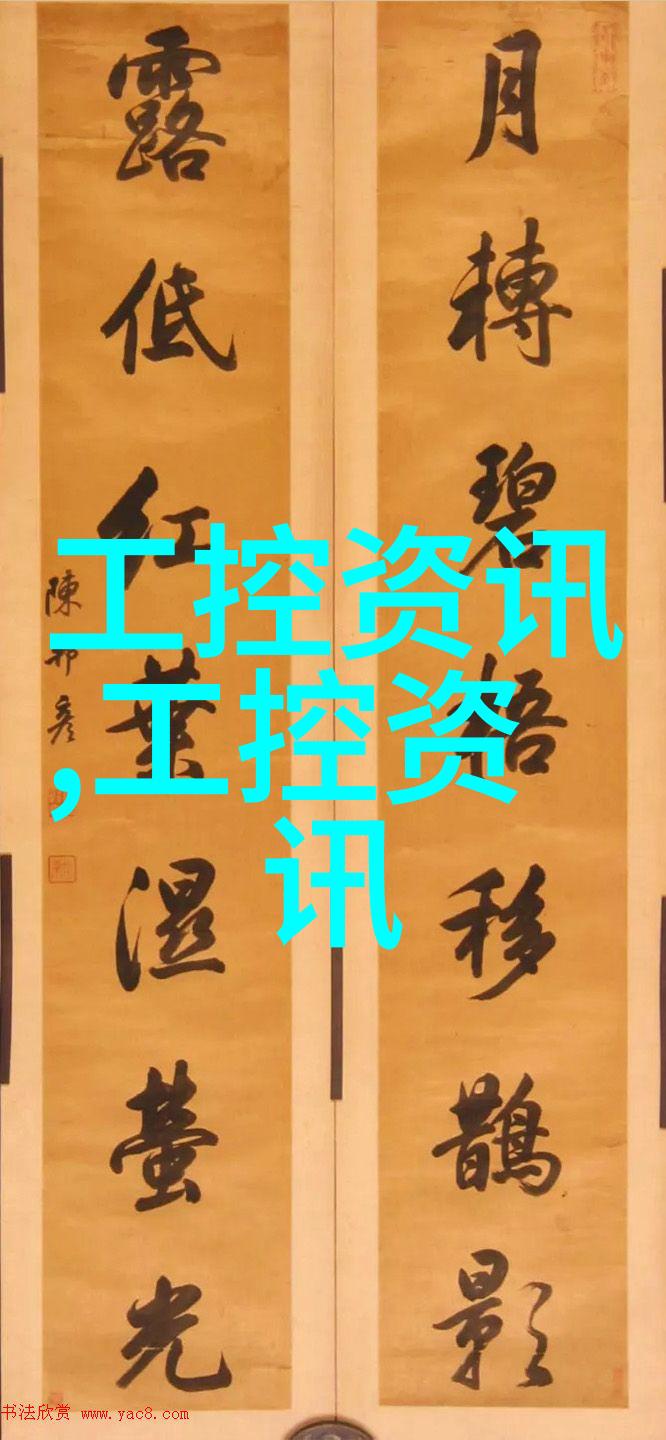 月轉碧梧移鵲影
露低紅葉濕螢光
陳邦彥
工控资讯
,工控资
讯
书法欣赏 www.yac8.com